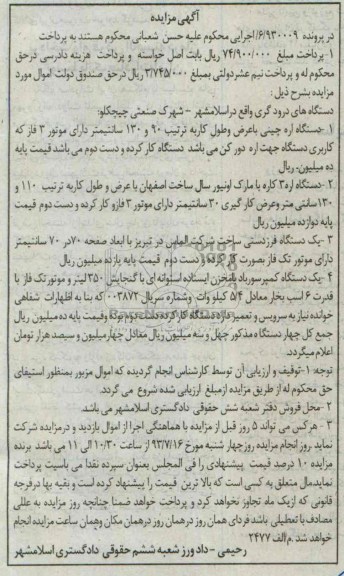 آگهی مزایده
در پرونده ۶/۹۳۰۰۰۹/اجرایی محکوم علیه حسن شعبانی محکوم هستند به پرداخت
۱-پرداخت مبلغ ۷۴/۹۰۰/۰۰۰ ریال بابت اصل خواسته و پرداخت هزینه دادرسی درحق
محکوم له و پرداخت نیم عشردولتی بمبلغ ۳/۷۴۵/۰۰۰ ریال درحق صندوق دولت اموال مورد
مزایده بشرح ذیل :
دستگاه های درود گری واقع دراسلامشهر - شهرک صنعتی چیچکلو:
۱ -دستگاه اره چینی باعرض وطول کاربه ترتیب ۹۰ و ۱۳۰ سانتیمتر دارای موتور ۳ فاز که
کاربری دستگاه جهت اره دور کن می باشد دستگاه کار کرده و دست دوم می باشد قیمت پایه
ده میلیون. ریال
۲ -دستگاه اره۳ کاره با مارک اونیور سال ساخت اصفهان با عرض و طول کاربه ترتیب ۱۱۰ و
۱۳۰سانتی متر وعرض کار گیری ۳۰ سانتیمتر دارای موتور ۳ فازو کار کرده و دست دوم قیمت
پایه دوازده میلیون ریال
۳ -یک دستگاه فرزدستی ساخت شرکت الماس در تبریز با ابعاد صفحه ۷۰در ۷۰ سانتیمتر
دارای موتور تک فاز بصورت کار کرده دست دوم قیمت پایه یازده میلیون ریال
۴ -یک دستگاه کمپرسورباد بامخزن ایستاده استوانه ای با گنجایش ۳۵۰لیتر و موتورتک فاز با
قدرت ۶ اسب بخار معادل ۵/۴ کیلو وات وشماره سریال ۰۰۳۸۷۲که بنا به اظهارات شفاهی
خوانده نیاز به سرویس و تعمیر دارد دستگاه کارکرده دست دوم بوده وقیمت پایه ده میلیون ریال
جمع کل چهار دستگاه مذکور چهل و سه میلیون ریال معادل چهارمیلیون و سیصد هزار تومان
اعلام میگردد.
توجه: ۱-توقیف و ارزیابی آن توسط کارشناس انجام گردیده که اموال مزبور بمنظور استیفای
حق محکوم له از طریق مزایده ازمبلغ ارزیابی شده شروع می گردد.
۲ -محل فروش دفتر شعبه شش حقوقی دادگستری اسلامشهر می باشد.
۳ -هرکس می تواند ۵ روز قبل از مزایده با هماهنگی اجرا از اموال بازدید و درمزایده شرکت
نماید روز انجام مزایده روزچهار شنبه مورخ ۹۳/۷/۱۶ از ساعت ۱۰/۳۰ الی ۱۱ می باشد برنده
مزایده ۱۰ درصد قیمت پیشنهادی را فی المجلس بعنوان سپرده نقدا می بایست پرداخت
نمایدمال متعلق به کسی است که بالا ترین قیمت را پیشنهاد کرده است و بقیه بها درفرجه
قانونی که ازیک ماه تجاوز نخواهد کرد و پرداخت خواهد ضمنا چنانچه روز مزایده به عللی
مصادف با تعطیلی باشد فردای همان روز درهمان روز درهمان مکان وهمان ساعت مزایده انجام
خواهد شد.م/الف ۲۴۷۷
رحیمی - داد ورز شعبه ششم حقوقی دادگستری اسلامشهر